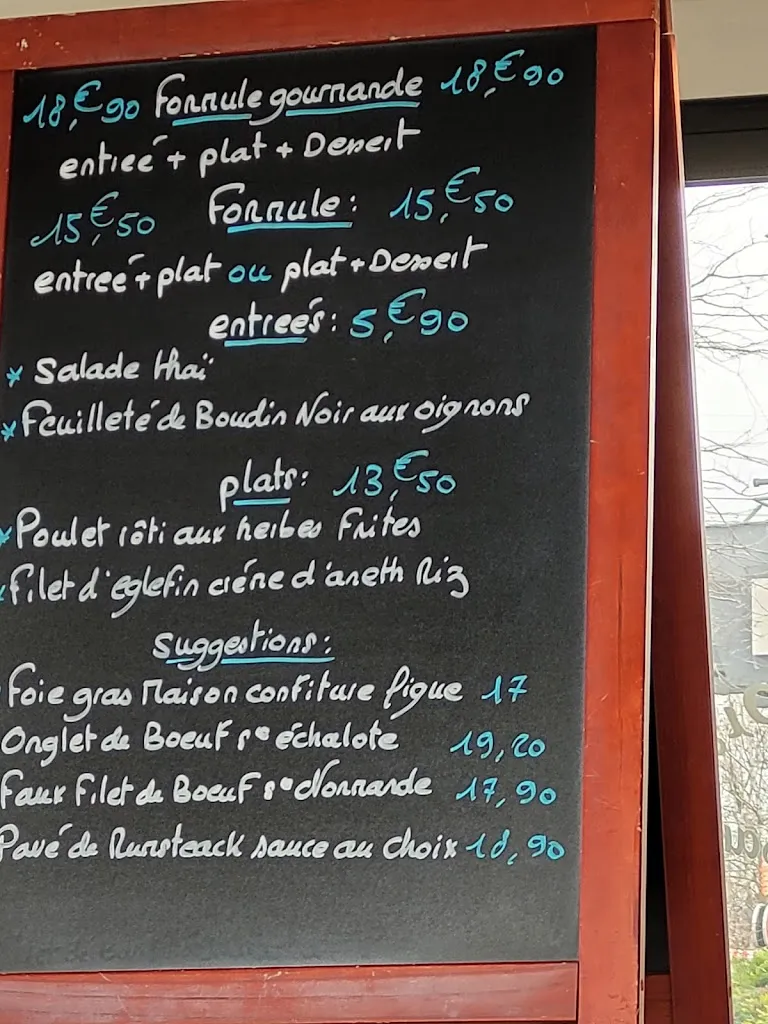 18,€90 Formule gourmande 18,€90
entreé + plat + Dessert
15,€50 Formule: 15,€50
entreé + plat ou plat + Dessert
entreés: 5,€90
* Salade thaï
* Feuilleté de Boudin Noir aux oignons
plats: 13,€50
* Poulet rôti aux herbes Frites
* Filet d'eglefin créme d'aneth Riz
suggestions:
Foie gras Maison confiture figue 17
Onglet de Boeuf s° échalote 19,20
Faux Filet de Boeuf s° Normande 17,90
Pavé de Rumsteack sauce au choix 18,90